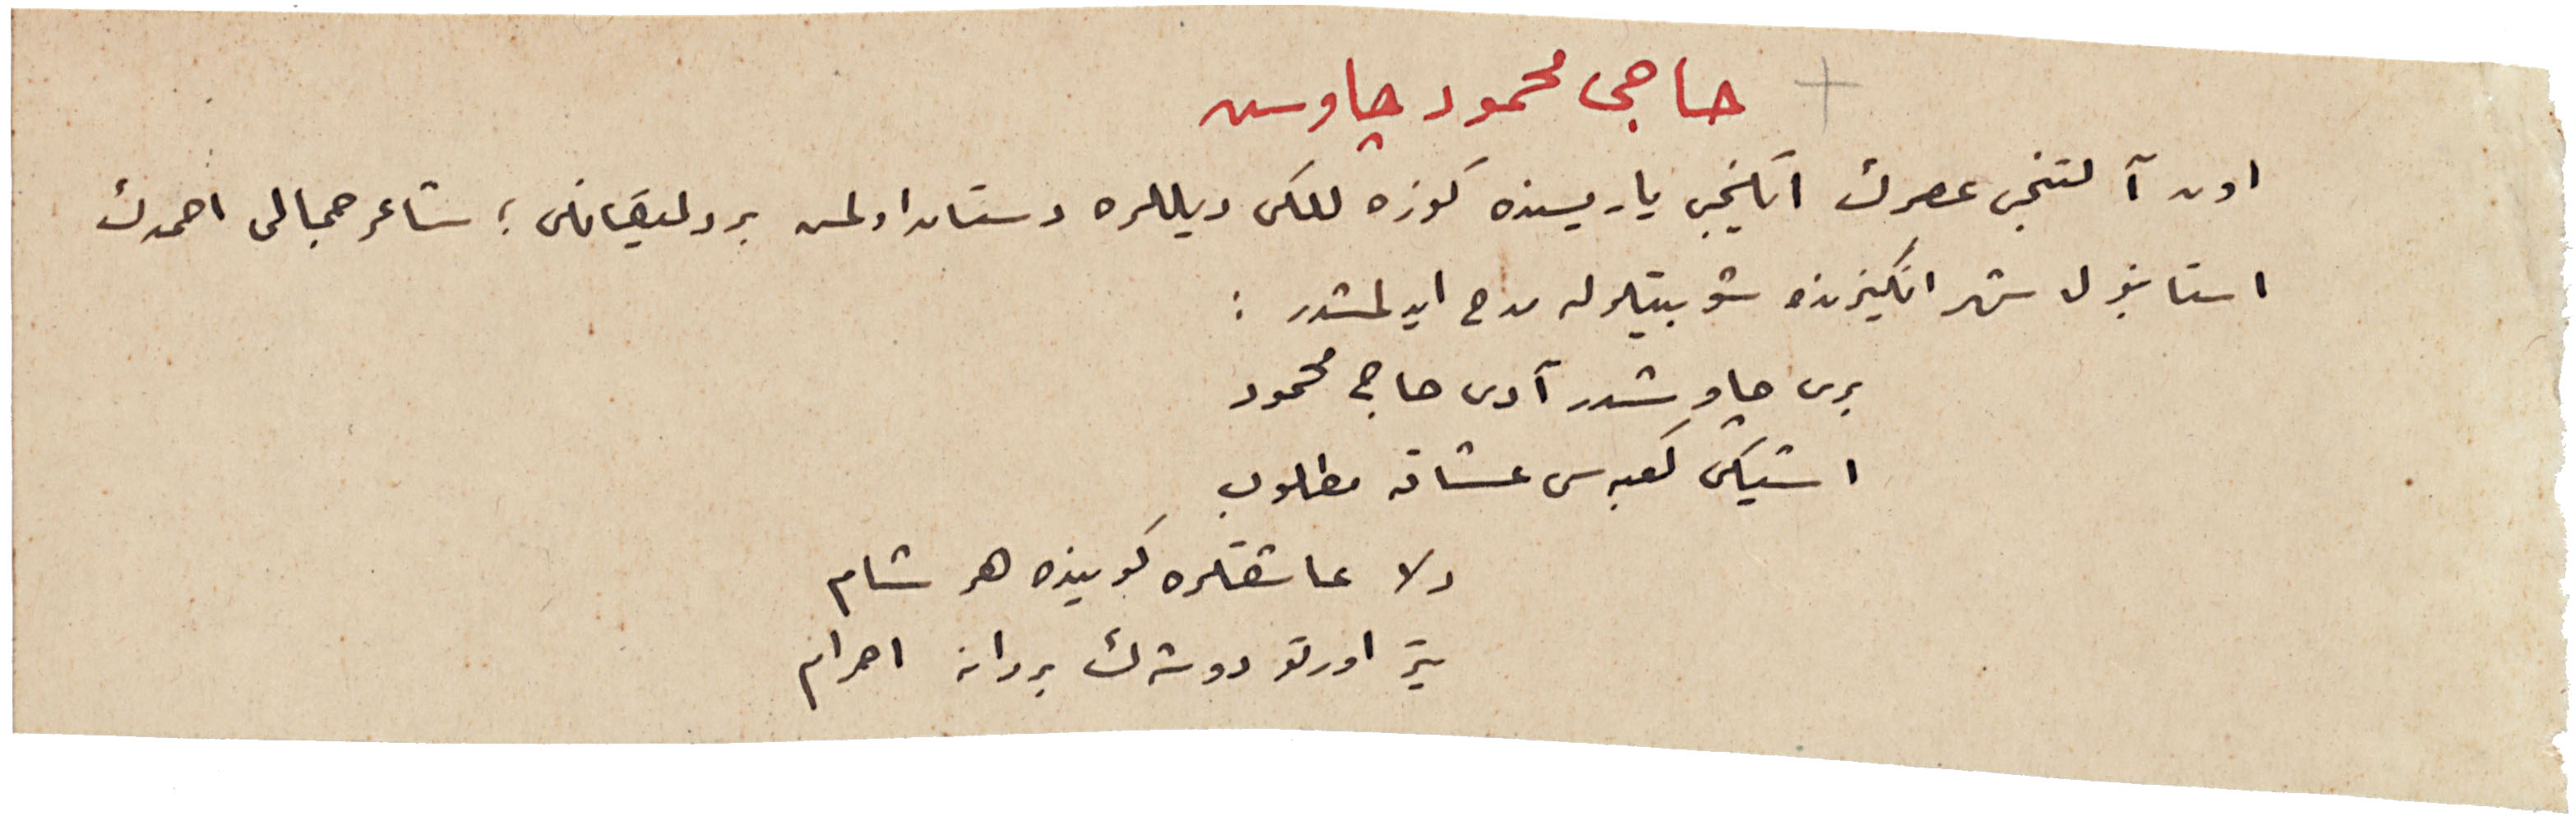 حاجی محمود چاوش
اون آلتنجی عصرك ایكنجی یاریسنده كوزه للكی دیللره دستان اولمش بر دلیقانلی ؛ شاعر جمالی احمدك
استانبول شهر انگیزنده شو بیتلرله مدح ایدلمشدر :
بری چاوشدر آدی حاجی محمود
اشیكی كعبه سی عشاقه مطلوب
دلا عاشقلره كوینده هر شام
یتر اورتو دوشه ك بردانه احرام